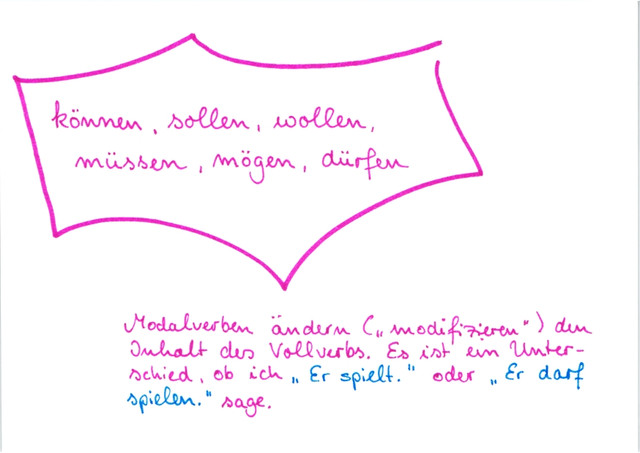 können, sollen, wollen,
müssen, mögen, dürfen
Modalverben ändern („modifizieren") den
Inhalt des Vollverbs. Es ist ein Unter-
schied, ob ich „Er spielt." oder „Er darf
spielen." sage.